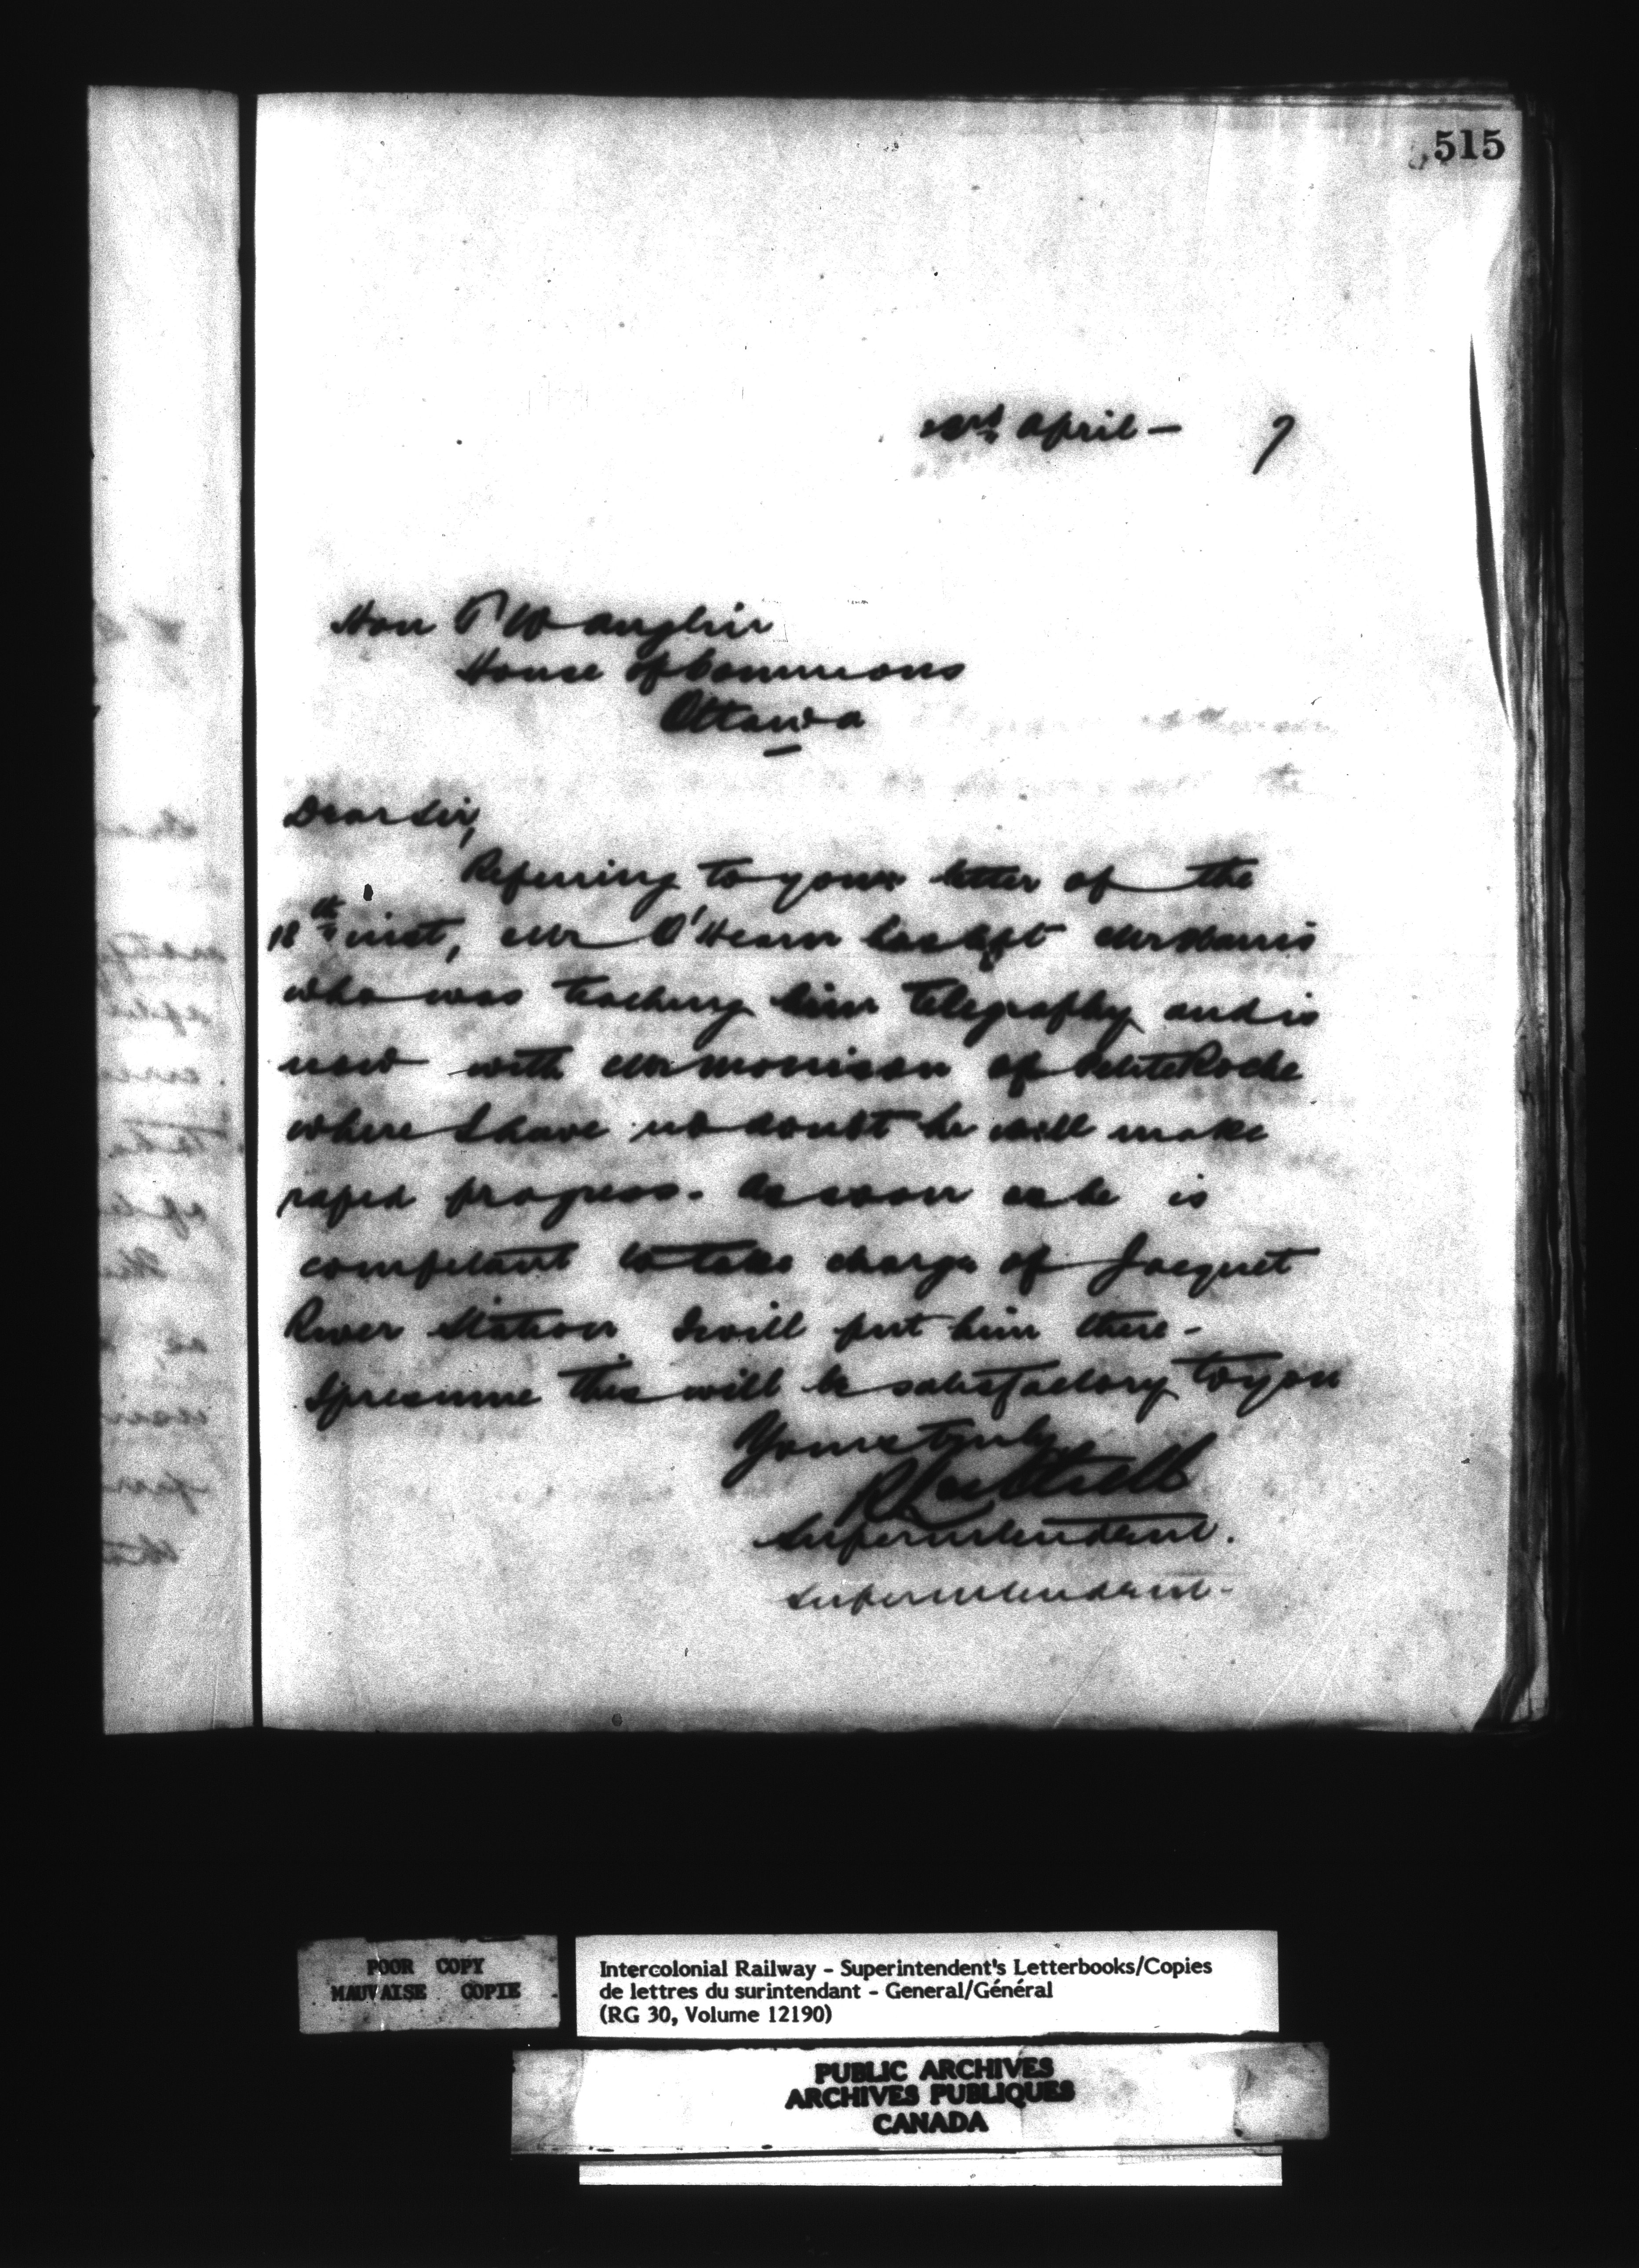 515
April — 7
Hon T W Anglin
House of Commons
Ottawa
Dear Sir,
Referring to your letter of the
18th inst, Mr O'Hearn has left Mr Harris
who was teaching him Telegraphy and is
now with Mr Morrison of Petite Roche
where I have no doubt he will make
rapid progress. As soon as he is
competant to take charge of Jacquet
River Station I will put him there -
I presume this will be satisfactory to you
Yours truly
R Luttrell
Superintendent.
Superintendent -
POOR COPY
MAUVAISE COPIE
Intercolonial Railway - Superintendent's Letterbooks/Copies
de lettres du surintendant - General/Général
(RG 30, Volume 12190)
PUBLIC ARCHIVES
ARCHIVES PUBLIQUES
CANADA